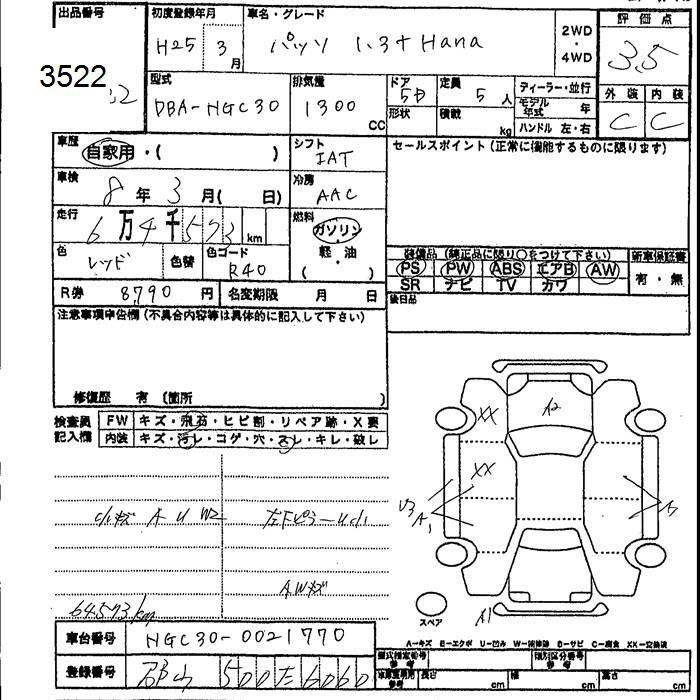 出品番号 初度登録年月 車名・グレード 2WD・4WD 評価点
H25 3月 パッソ 1.3+Hana 3.5
3522
型式 排気量 ドア 定員 ディーラー・並行 外装 内装
DBA-NGC30 1300 CC 5D 5人 モデル年式 年 C C
形状 積載 kg ハンドル 左・右
車歴 自家用・( ) シフト IAT セールスポイント(正常に機能するものに限ります)
車検 8年3月( 日) 冷房 AAC
走行 6万4千573 km 燃料 ガソリン
軽・油
色 レッド 色替 色コード R40 ( )
装備品(純正品に限り○をつけて下さい) 新車保証書
PS PW ABS エアB AW 有・無
SR ナビ TV カワ
R券 8790円 名変期限 月 日 後日品
注意事項申告欄(不具合内容等は具体的に記入して下さい)
修復歴 有 (箇所 )
検査員記入欄 FW キズ・飛石・ヒビ割・リペア跡・X要
内装 キズ・汚レ・コゲ・穴・スレ・キレ・破レ
XX A2
XX
A U W2
AWキズ
64573km
スペア A1
A-キズ E-エクボ U-凹ミ W-補修跡 S-サビ C-腐食 XX-交換済
車台番号 NGC30-0021770 型式指定番号 参考 類別区分番号 参考
登録番号 500 6060 車庫証明用 参考 長さ cm 幅 cm 高さ cm